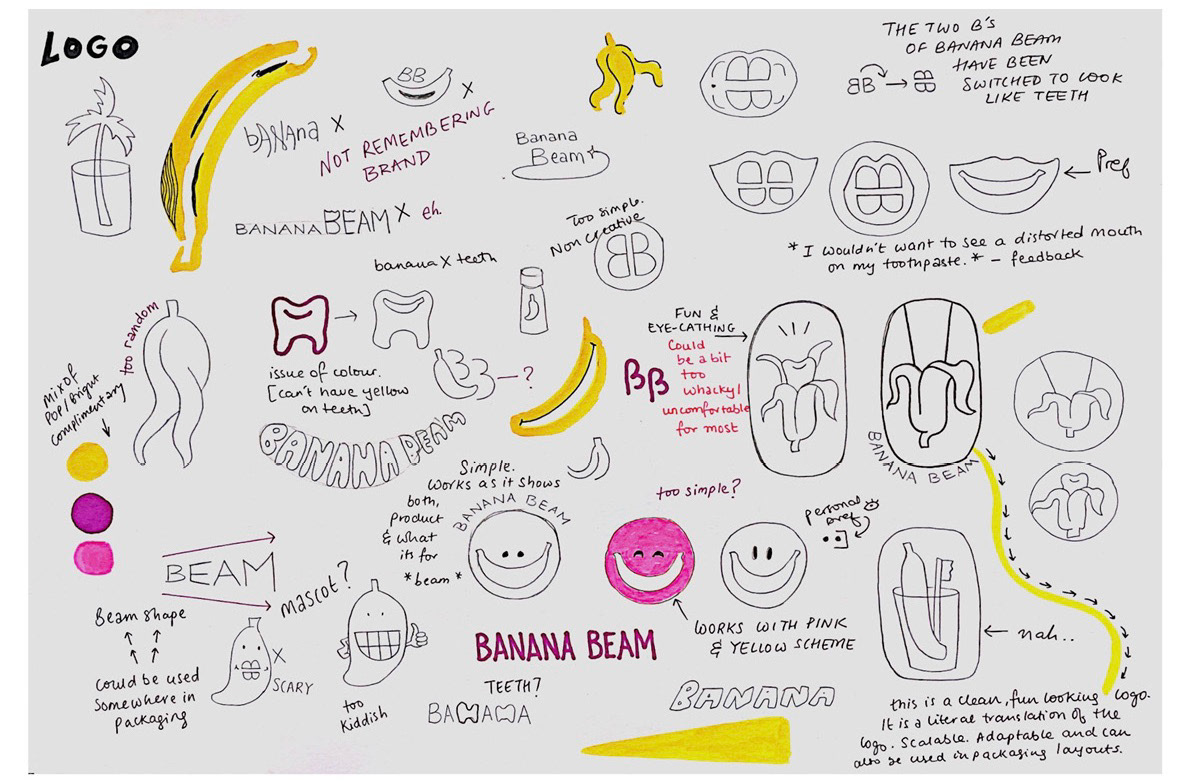 LOGO
BB
X
bANAna X
NOT REMEMBERING
BRAND
Banana
Beam
THE TWO B'S
OF BANANA BEAM
HAVE BEEN
SWITCHED TO LOOK
LIKE TEETH
BB → BB
BB
BB
BB
← Pref
* I wouldn't want to see a distorted mouth
on my toothpaste. * - feedback
BANANA BEAM X eh.
Too simple.
Non creative
BB
banana X teeth
issue of colour.
[can't have yellow
on teeth]
BB
—?
too random
mix of
pop/bright
complimentary
BANANA BEAM
FUN &
EYE-CATHING
BB
Could
be a bit
too
whacky/
uncomfortable
for most
BANANA BEAM
Simple.
Works as it shows
both,
product
& what
its for
*beam*
BANANA BEAM
too simple?
personal
pref
WORKS WITH PINK
& YELLOW SCHEME
BEAM
Beam shape
could be used
somewhere in
packaging
mascot?
X
SCARY
too
kiddish
BANANA BEAM
TEETH?
BANANA
BANANA
← nah..
this is a clean, fun looking logo.
It is a literal translation of the
logo. Scalable. Adaptable and can
also be used in packaging layouts.